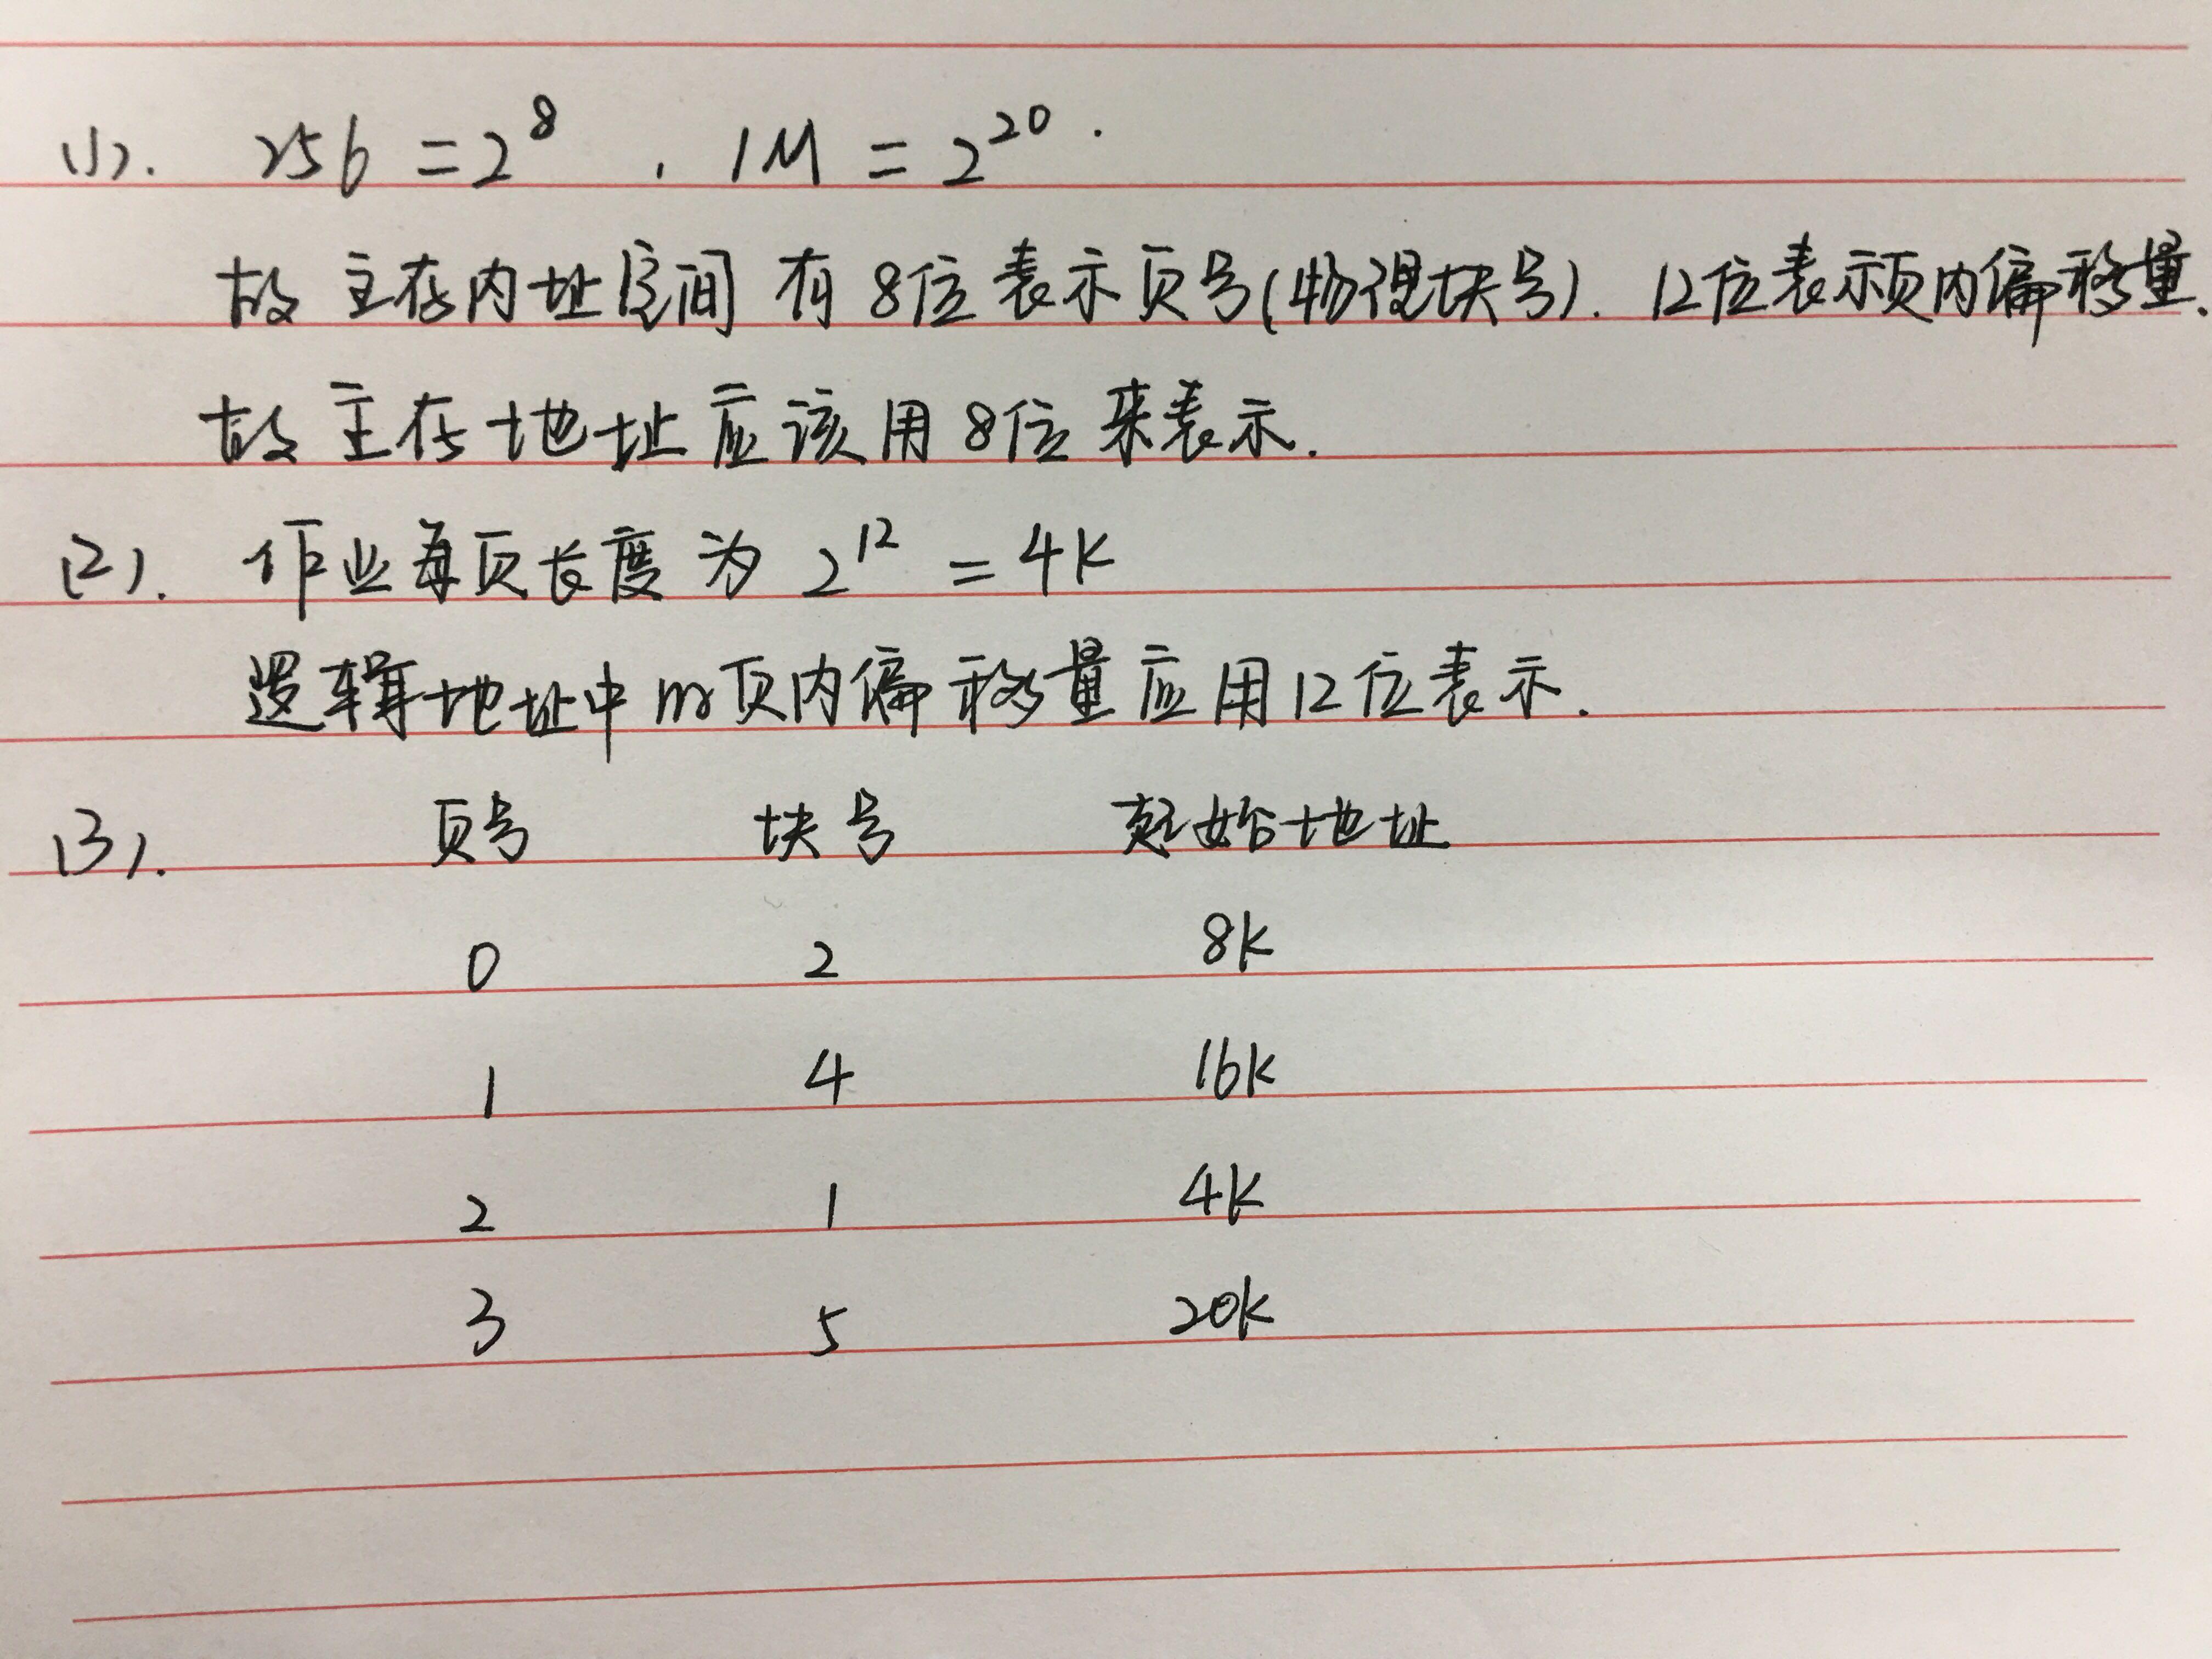 (1). 256 = 2^8 . 1M = 2^20 .
故主存内址空间有8位表示页号(物理块号). 12位表示页内偏移量.
故主存地址应该用8位来表示.
(2). 作业每页长度为 2^12 = 4K
逻辑地址中的页内偏移量应用12位表示.
(3). 页号 块号 起始地址
0 2 8K
1 4 16K
2 1 4K
3 5 20K